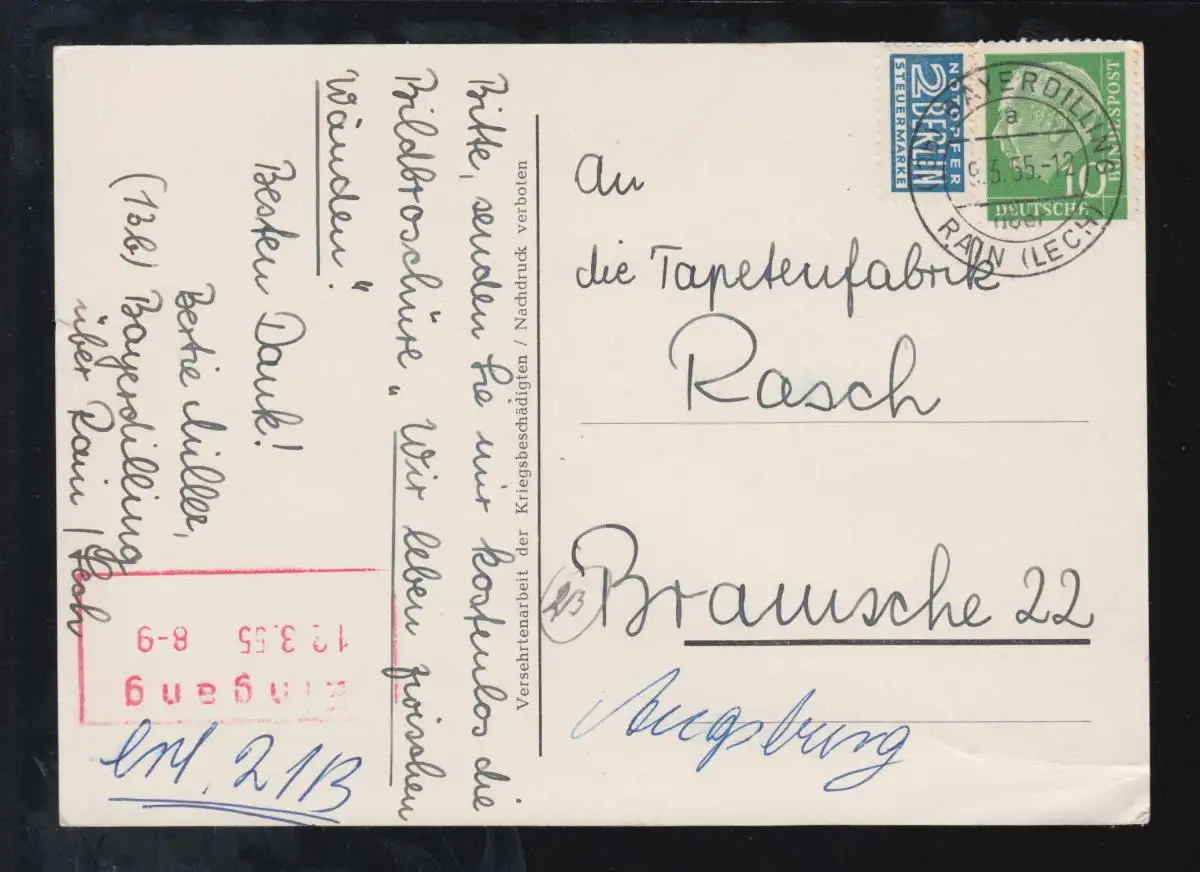 Bitte, senden Sie mir kostenlos die
Bildbroschüre „Wir leben zwischen
Wänden“.
Besten Dank!
Bertie Müller,
(13b) Bayerdilling
über Rain/Lech
Eingang
12.3.55 8-9
erl. 21B
Versehrtenarbeit der Kriegsbeschädigten / Nachdruck verboten
NOTOPFER
2 BERLIN
STEUERMARKE
BAYERDILLING
a
9.3.55.-12
über
RAIN (LECH)
10
DEUTSCHE
BUNDESPOST
An
die Tapetenfabrik
Rasch
(23) Bramsche 22
Augsburg